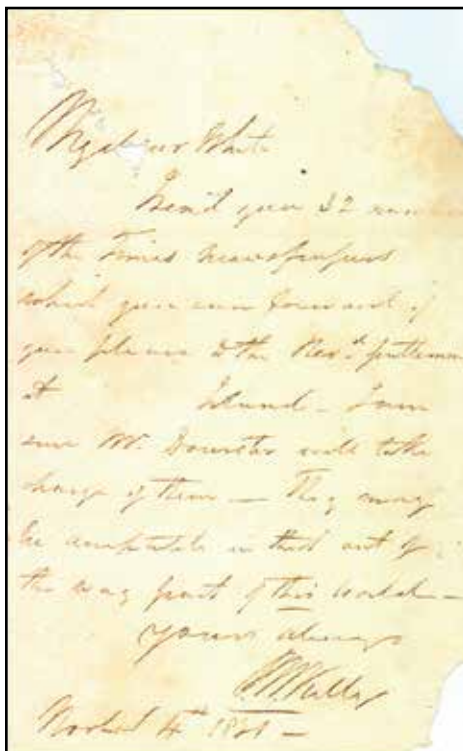 My dear White
I send you 32 num
of the Times Newspapers
which you can forward if
you please to the Revd. Gentlemen
at Island - I am
sure Mr. will take
charge of them — They may
be acceptable in that out of
the way part of this world —
yours always
4th